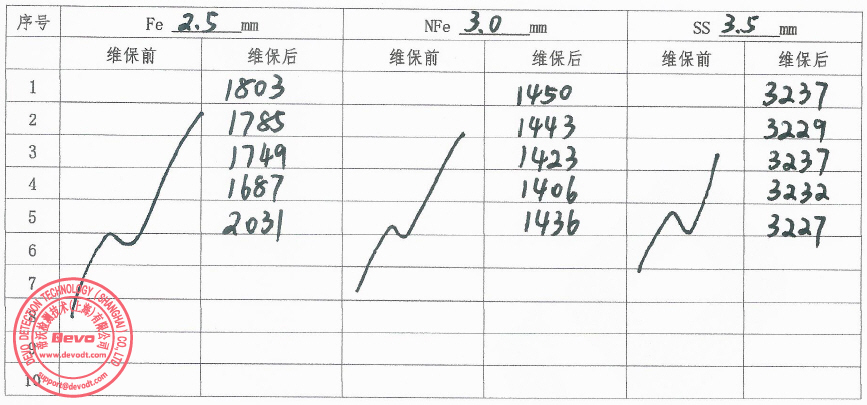 序号 Fe 2.5 mm NFe 3.0 mm SS 3.5 mm
维保前 维保后 维保前 维保后 维保前 维保后
1 1803 1450 3237
2 1785 1443 3229
3 1749 1423 3237
4 1687 1406 3232
5 2031 1436 3227
6
7
8
9
10
DEVO DETECTION TECHNOLOGY (SHANGHAI) CO.,LTD
帝沃检测技术(上海)有限公司
Devo
www.devodt.com
support@devodt.com